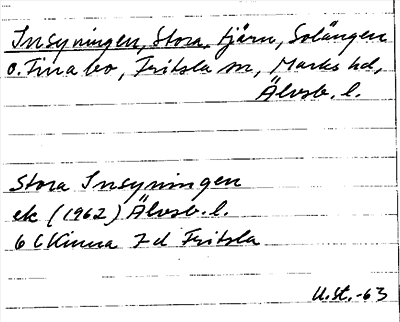 Insyningen, Stora, tjärn, Solängen
o. Finabo, Fritsla sn, Marks hd,
Älvsb. l.
Stora Insyningen
ek (1962) Älvsb. l.
6 C Kinna 7 d Fritsla
U.St. -63